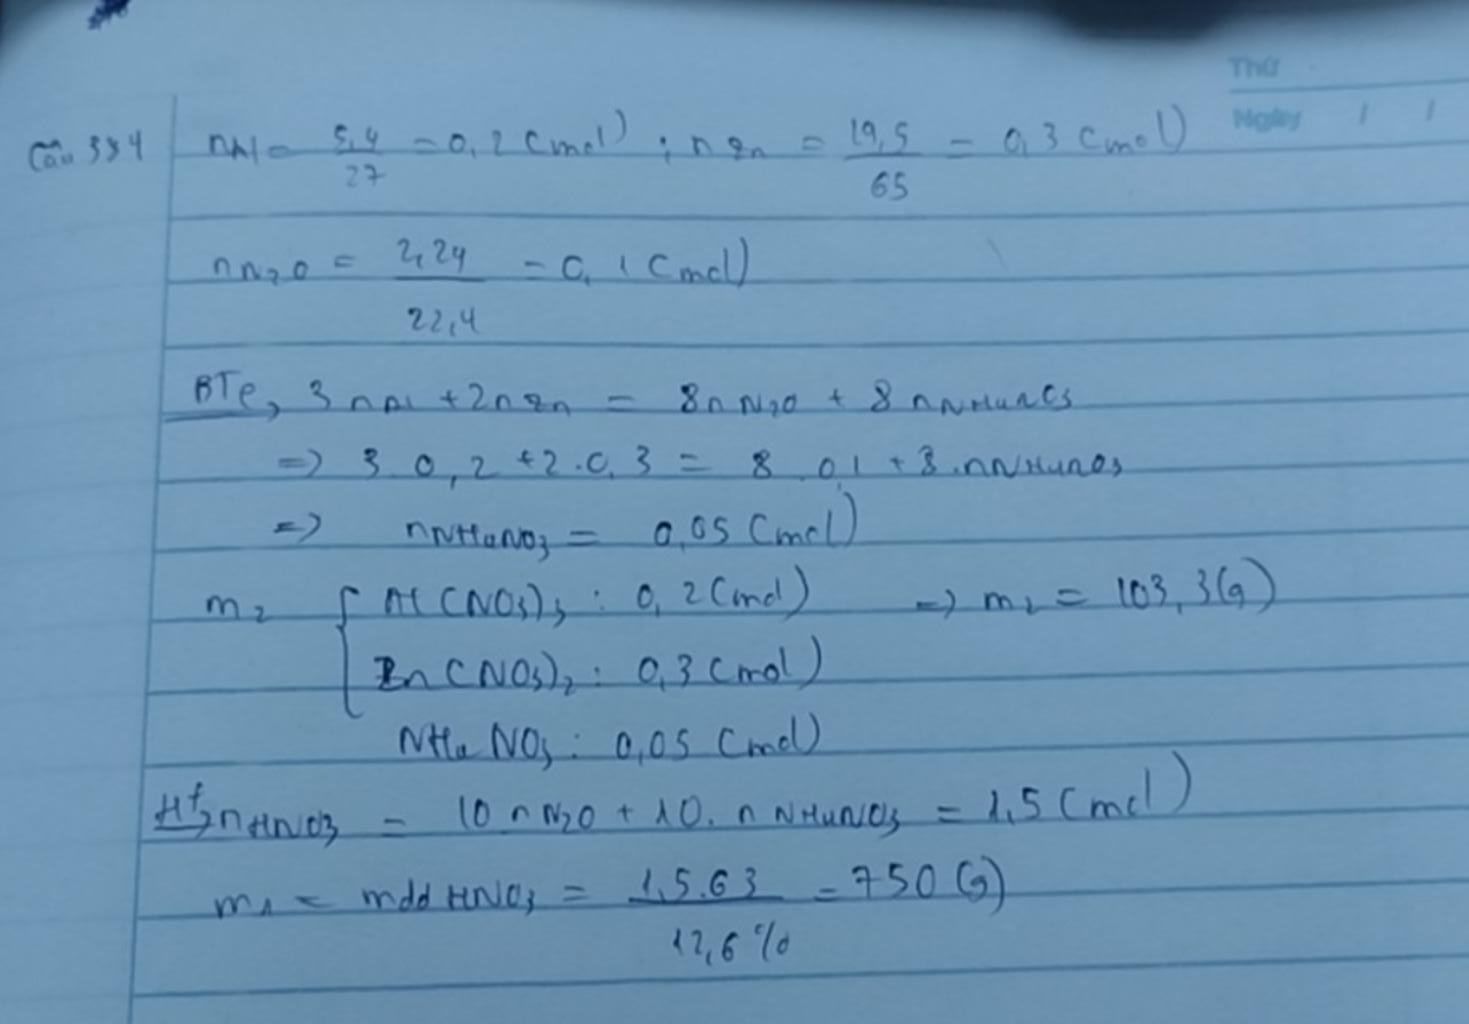 Thứ
Ngày / /
Câu 384
nAl = 5,4/27 = 0,2 (mol) ; nZn = 19,5/65 = 0,3 (mol)
nN2O = 2,24/22,4 = 0,1 (mol)
BTe, 3nAl + 2nZn = 8nN2O + 8nNH4NO3
=> 3.0,2 + 2.0,3 = 8.0,1 + 8.nNH4NO3
=> nNH4NO3 = 0,05 (mol)
m2 { Al(NO3)3 : 0,2 (mol) => m2 = 103,3 (g)
Zn(NO3)2 : 0,3 (mol)
NH4NO3 : 0,05 (mol)
H+, nHNO3 = 10nN2O + 10.nNH4NO3 = 1,5 (mol)
m1 = mdd HNO3 = 1,5.63/12,6% = 750 (g)